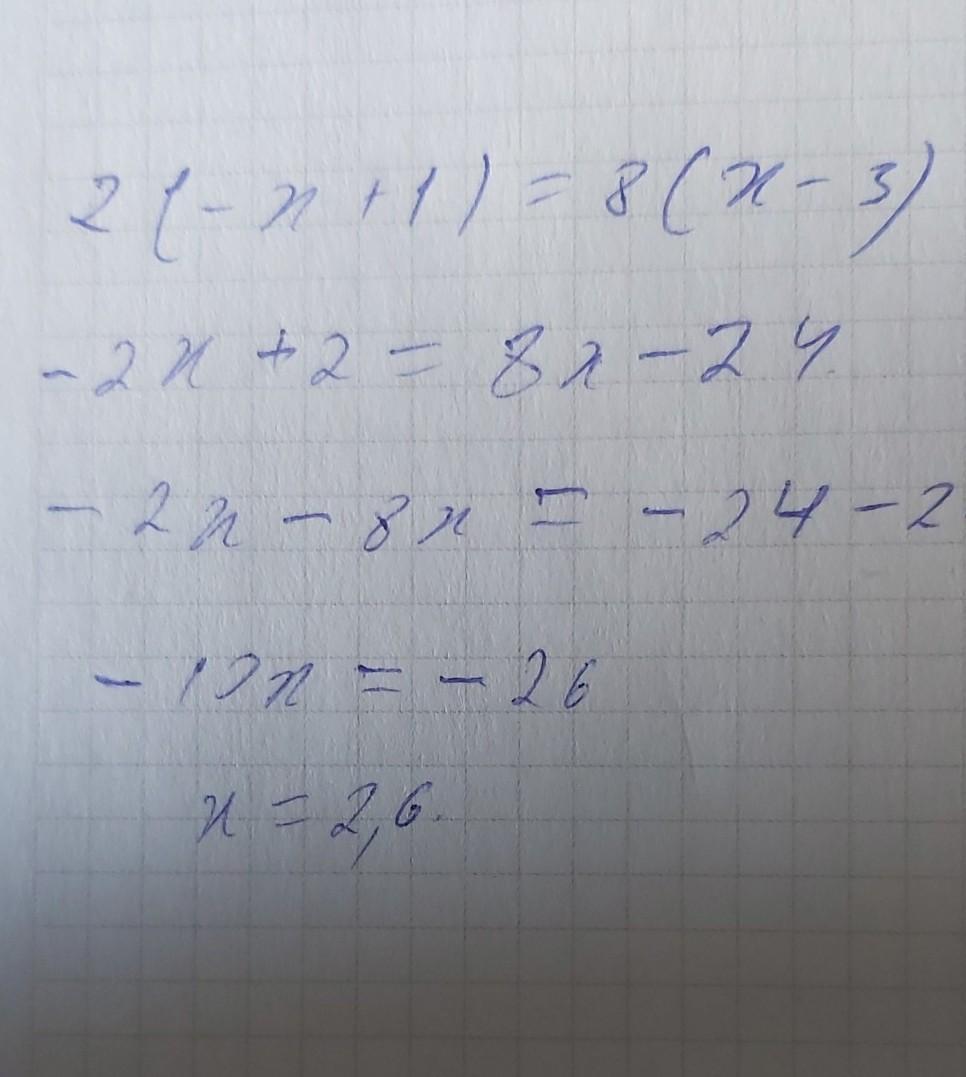 2(-x+1)=8(x-3)
-2x+2=8x-24.
-2x-8x=-24-2
-10x=-26
x=2,6.